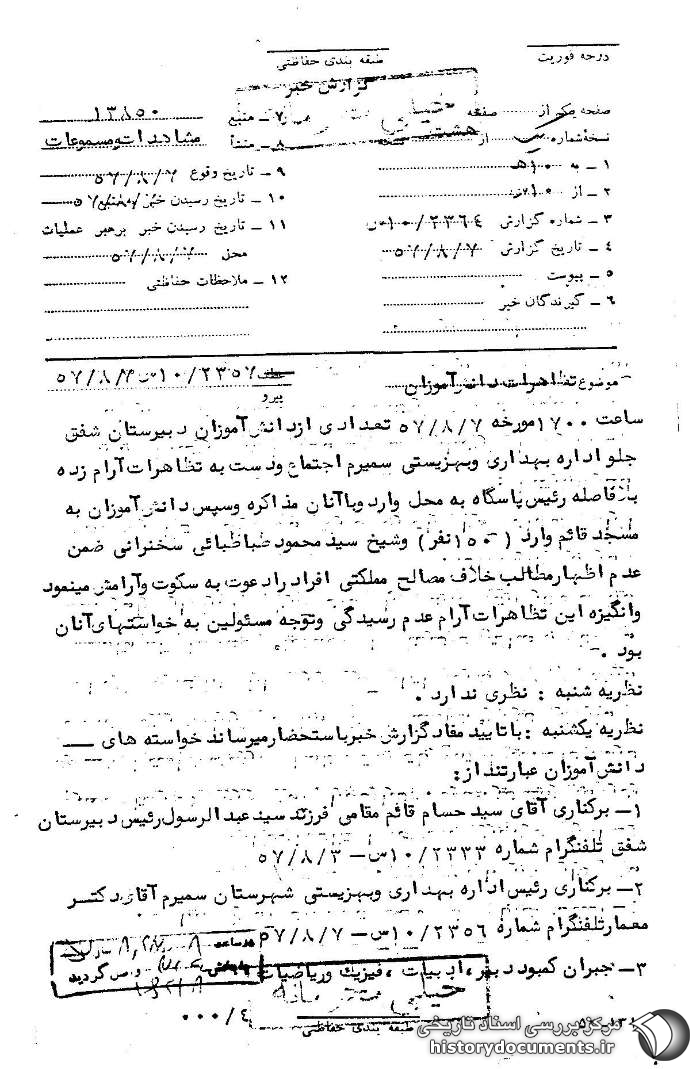 درجه فوریت
طبقه بندی حفاظتی
گزارش خبر
خیلی محرمانه
صفحه یکم از صفحه
نسخه شماره از هشت نسخه
۱ – به ۱۰ هـ
۲ – از ۱۰ س
۳ – شماره گزارش ۱۰/۲۳۶۴س
۴ – تاریخ گزارش ۵۷/۸/۷
۵ – پیوست
۶ – گیرندگان خبر
۷ – منبع ۱۳۸۵۰
۸ – منشأ مشاهدات و مسموعات
۹ – تاریخ وقوع ۵۷/۸/۷
۱۰ – تاریخ رسیدن خبر بمنبع ۵۷/۸/۷
۱۱ – تاریخ رسیدن خبر برهبر عملیات
محل ۵۷/۸/۷
۱۲ – ملاحظات حفاظتی
موضوع تظاهرات دانش آموزان
عطف ۱۰/۲۳۵۷س ۵۷/۸/۷
پیرو
ساعت ۱۷۰۰ مورخه ۵۷/۸/۷ تعدادی ازدانش آموزان دبیرستان شفق
جلو اداره بهداری وبهزیستی سمیرم اجتماع ودست به تظاهرات آرام زده
بلافاصله رئیس پاسگاه به محل وارد وباآنان مذاکره وسپس دانش آموزان به
مسجد قائم وارد (۱۵۰ نفر) وشیخ سید محمود طباطبائی سخنرانی ضمن
عدم اظهار مطالب خلاف مصالح مملکتی افراد را دعوت به سکوت وآرامش مینمود
وانگیزه این تظاهرات آرام عدم رسیدگی وتوجه مسئولین به خواستهای آنان
بود .
نظریه شنبه : نظری ندارد .
نظریه یکشنبه : با تایید مفاد گزارش خبر باستحضار میرساند خواسته های —
دانش آموزان عبارتنداز:
۱– برکناری آقای سید حسام قائم مقامی فرزند سید عبدالرسول رئیس دبیرستان
شفق تلفنگرام شماره ۱۰/۲۳۳۳س – ۵۷/۸/۳
۲– برکناری رئیس اداره بهداری وبهزیستی شهرستان سمیرم آقای دکتر
معمار تلفنگرام شماره ۱۰/۲۳۵۶س – ۵۷/۸/۷
۳– جبران کمبود دبیر، ادبیات ، فیزیک وریاضیات
در ساعت
گردید
خیلی محرمانه
طبقه بندی حفاظتی
۰۰۰/۴
مرکز بررسی اسناد تاریخی
historydocuments.ir